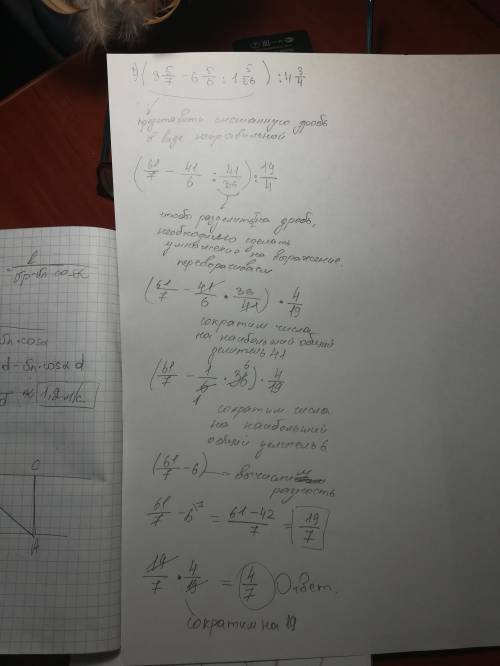 1) (8 5/7 - 6 5/6 : 1 5/36) : 4 3/4
представить смешанную дробь
в виде неправильной
(61/7 - 41/6 : 41/36) : 19/4
чтобы разделить дробь,
необходимо сделать
умножение на выражение.
переворачиваем
(61/7 - 41/6 • 36/41) • 4/19
сократим числа
на наибольший общий
делитель 41
(61/7 - 1/6 • 36) • 4/19
6
1
сократим числа
на наибольший
общий делитель 6
(61/7 - 6) — вычислим
разность
61/7 - 6 = 61-42/7 = 19/7
19/7 • 4/19 = 4/7 Ответ.
сократим на 19
cosα
d - Sn·cosα d
1,2 м/с
C
H